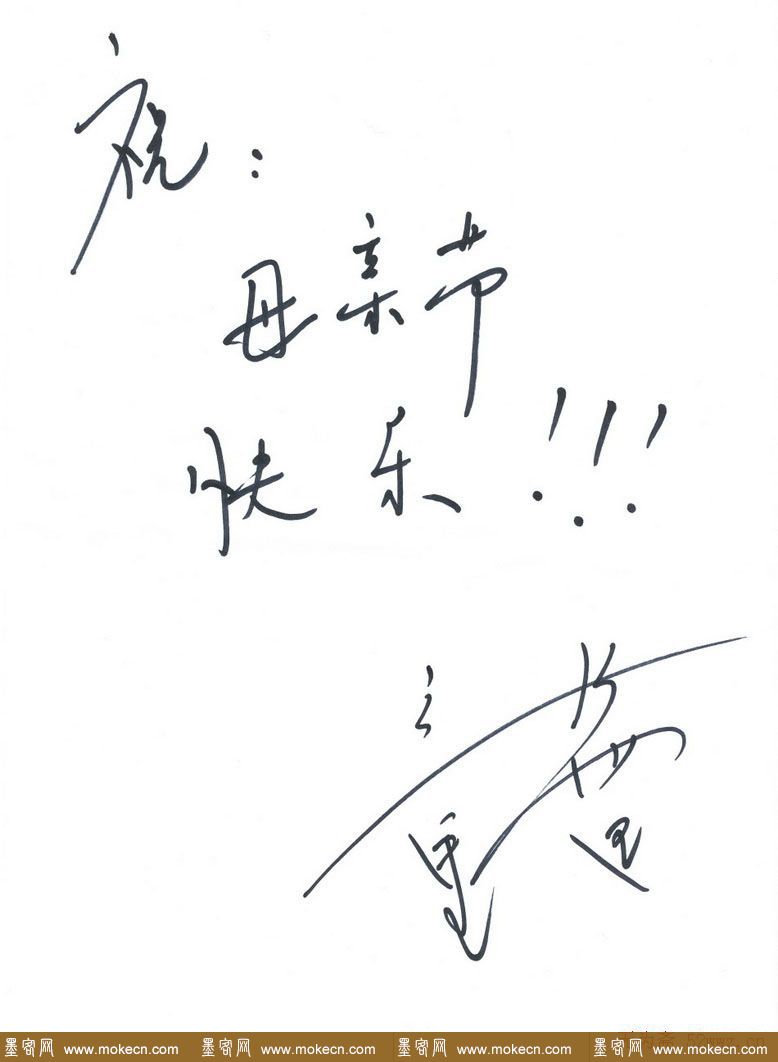 祝：
母亲节
快乐!!!
墨客网 www.mokecn.com 墨客网 www.mokecn.com 墨客网 www.mokecn.com 墨客网 www.mokecn.com